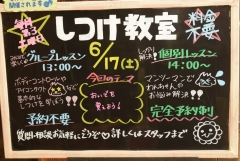 開催されます
毎月第3土曜日
しつけ教室
料金不要
6/17(土)
グループレッスン
13:00〜
しっかり解決!
個別レッスン
14:00〜
ボディーコントロールや
アイコンタクトなど
基本的な
しつけを学ぼう!
今回のテーマ
おいでを
覚えよう!
マンツーマンで
わんちゃんの
お悩み解決!!
予約不要
完全予約制
質問・相談お気軽にどうぞ♡詳しくはスタッフまで